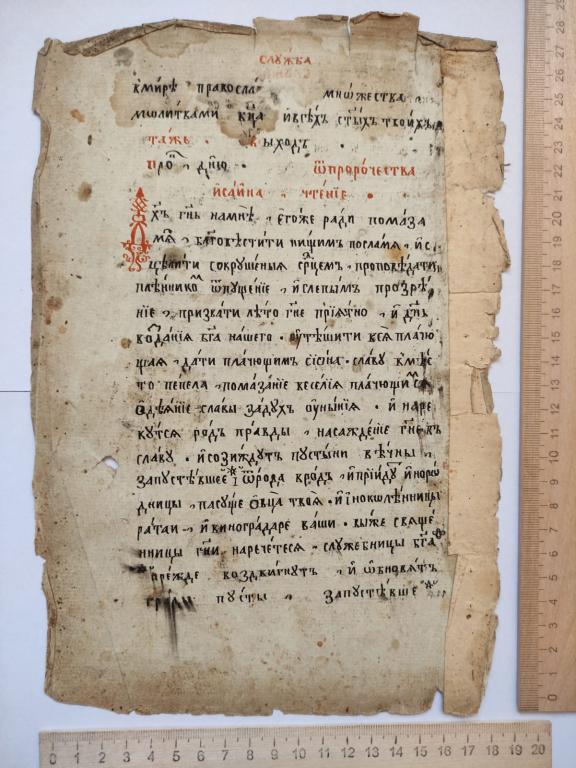 слꙋ́жба
в҆ми́рѣ правосла́ мно́жества
мл҃итвами кн҃ѧ и҆всѣ́хъ ст҃ы́хъ твои́хъ
та́же выхо́дъ
про́ дн҃ю ѿпроро́чества
и҆са́и҆на чте́нїе
Дх҃ъ гн҃ь намнѣ̀ є҆го́же ра́ди пома́за
мѧ̀ бл҃говѣсти́ти ни́щимъ посла́мѧ и҆с
цѣли́ти сокрꙋше́ныѧ ср҃цемъ проповѣ́дати
плѣ́нникѡ ѿпꙋще́нїе и҆слепы́мъ прозрѣ́
нїе призва́ти лѣ́то гн҃е прїѧ́тно и҆ дн҃ь
возда́нїѧ бг҃а на́шего ᲂу҆тѣ́шити всѧ̀ пла́чю
щаѧ да́ти пла́чющимъ сїѡ́на сла́вꙋ вмѣ́с
то пе́пела пома́занїе весе́лїѧ пла́чющимсѧ
ѻ҆дѣѧ́нїе сла́вы задꙋ́хъ ᲂу҆ны́нїѧ и҆ наре
кꙋ́тсѧ ро́дъ пра́вды насажде́нїе гн҃е въ
сла́вꙋ и҆сози́ждꙋтъ пꙋсты́ни вѣ́чны
запꙋстѣ́вшее ѿро́да вро́дъ и҆прїи́дꙋ и҆норо
дницы пасꙋ́ще ѻ҆вца̀ твоѧ̀ и҆и҆нокол́ѣнницы
рата́и и҆виногра́даре ва́ши вы́же свѧще́
нницы гн҃и нарече́тесѧ слꙋже́бницы бг҃а
пре́жде воздви́гнꙋтъ и҆ ѡ҆бновѧ́тъ
гра́ды пꙋ́сты запꙋстѣ́вше